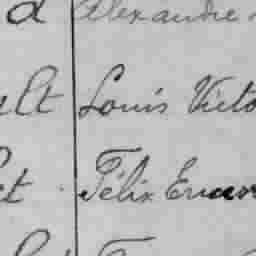 d Alexandre
lt Louis Victo
et Félix